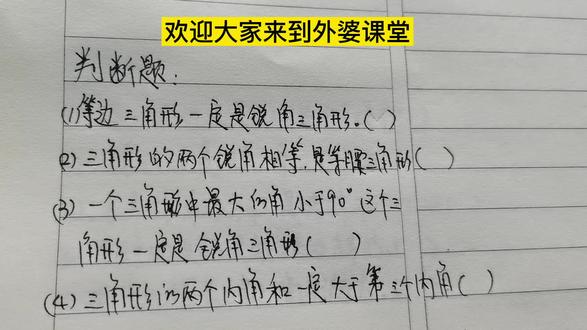 欢迎大家来到外婆课堂
判断题:
(1)等边三角形一定是锐角三角形.( )
(2)三角形的两个锐角相等,是等腰三角形( )
(3)一个三角形中最大的角小于90°这个三
角形一定是锐角三角形( )
(4)三角形的两个内角和一定大于第三个内角( )